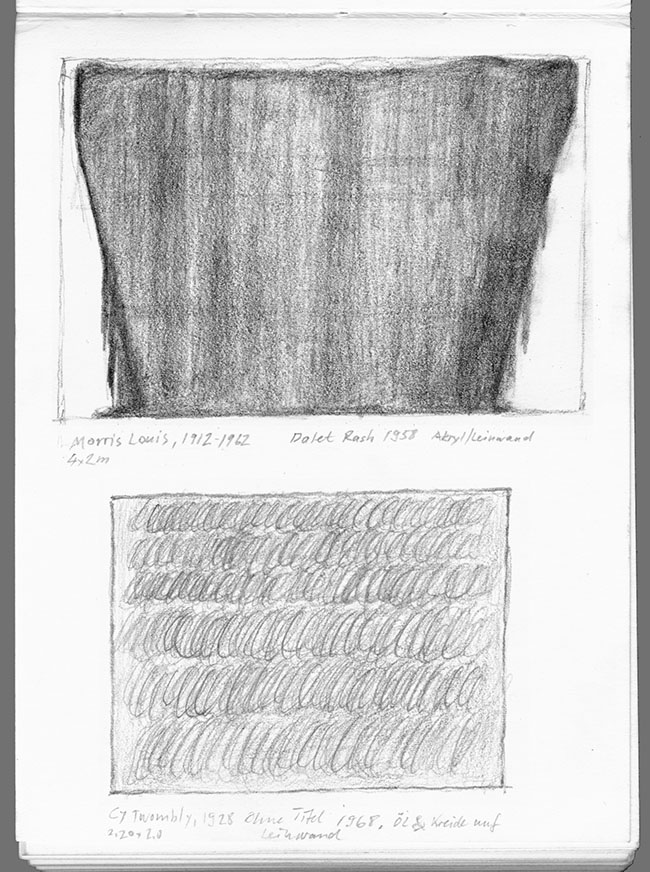 Morris Louis, 1912-1962 Dalet Rash 1958 Akryl/Leinwand
4x2m
Cy Twombly, 1928 Ohne Titel 1968, Öl & Kreide auf
2,20x2,0 Leinwand